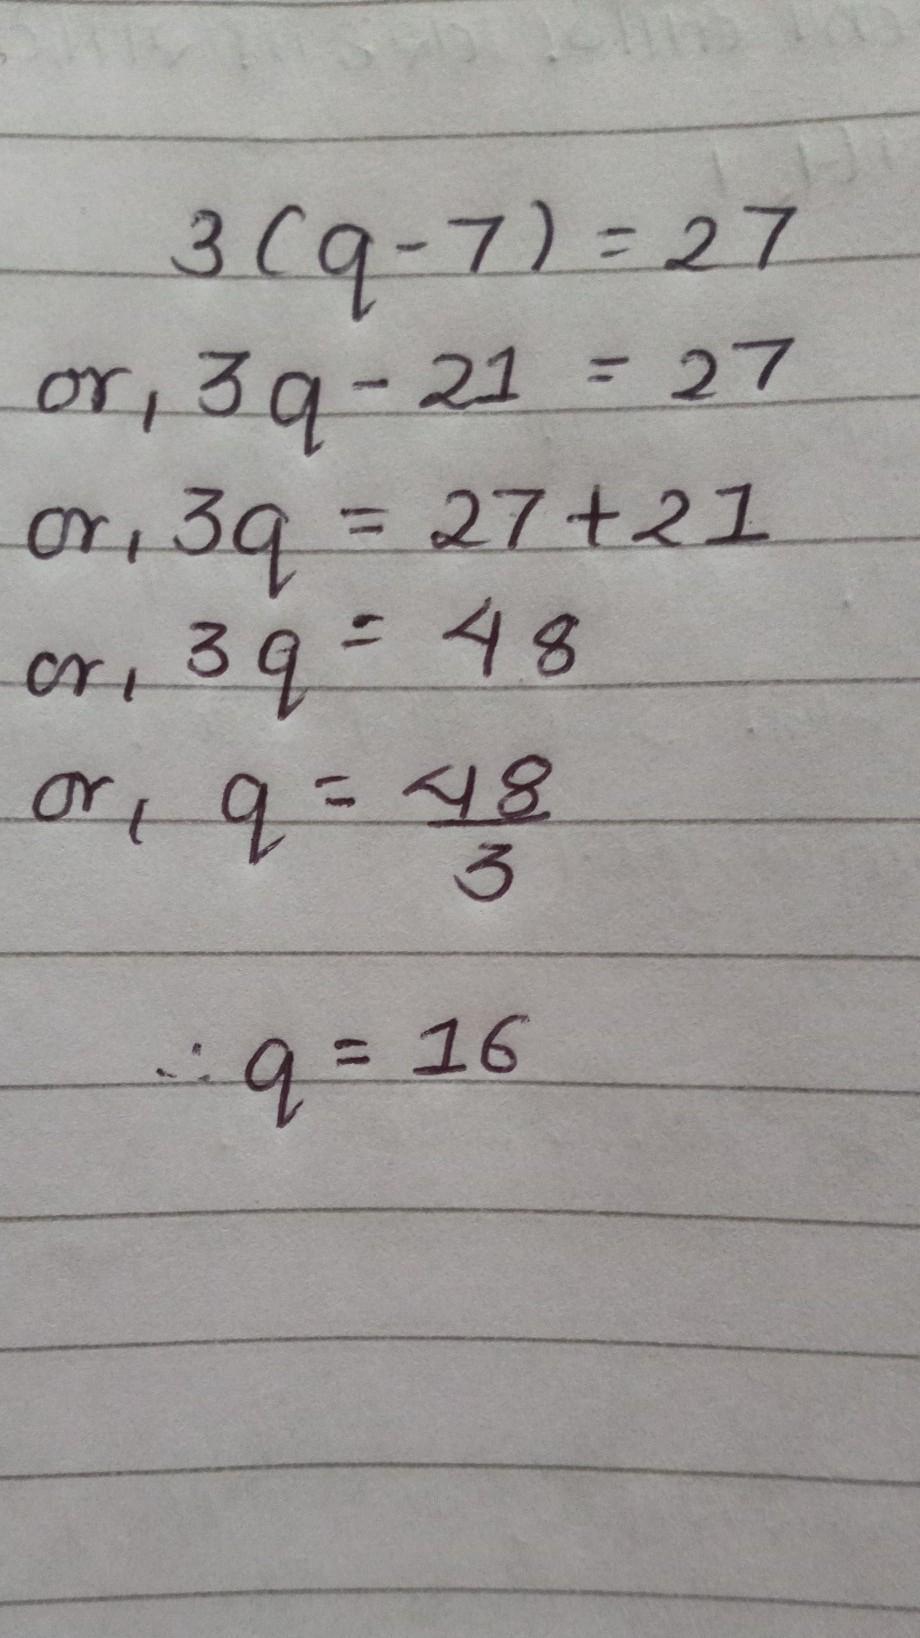 3(q-7) = 27
or, 3q - 21 = 27
or, 3q = 27 + 21
or, 3q = 48
or, q = 48/3
∴ q = 16